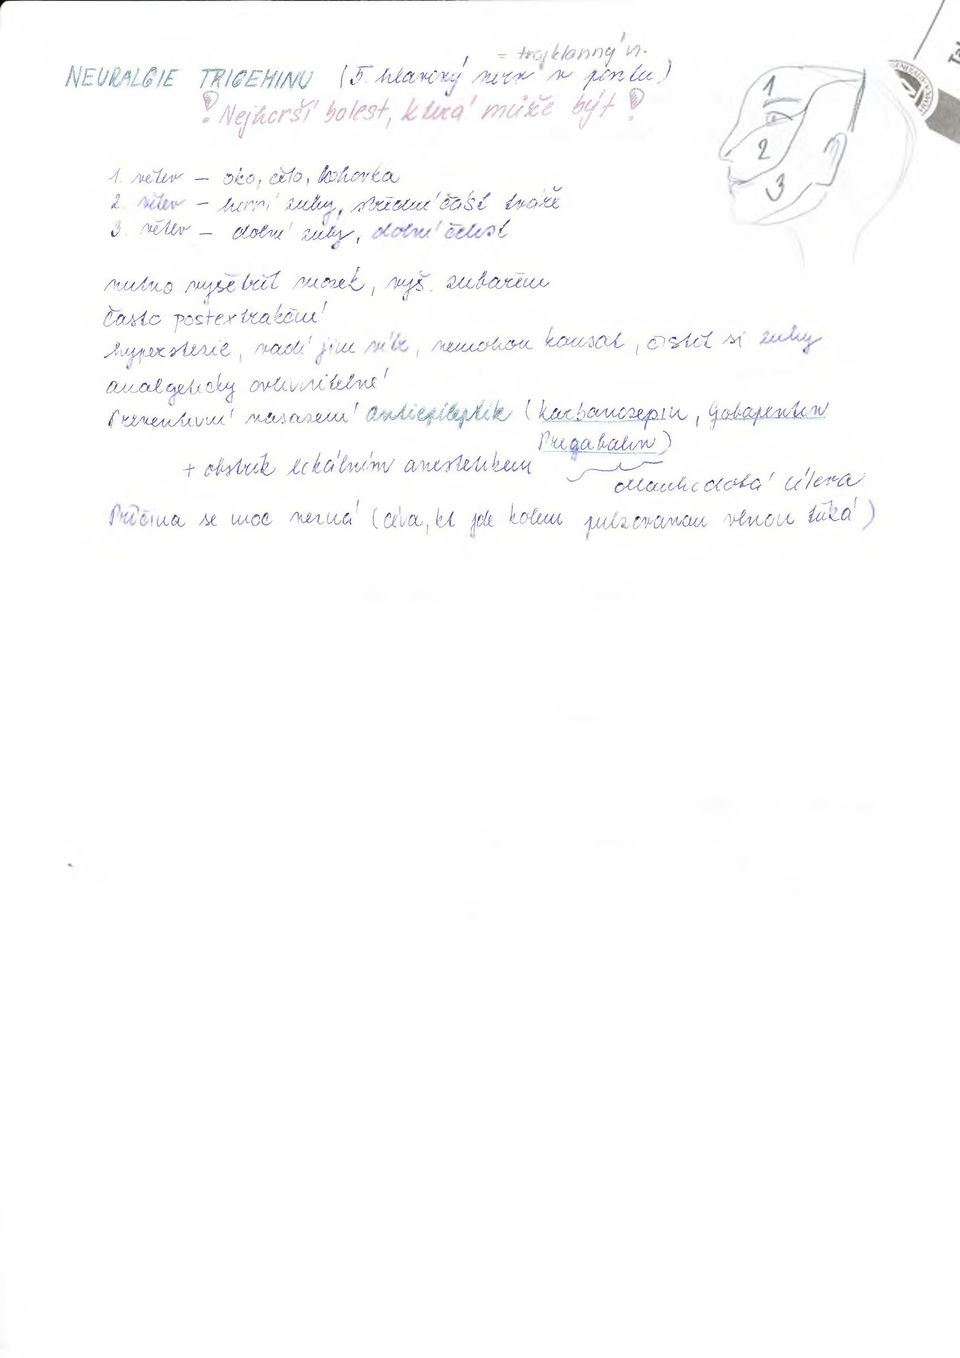 = trojklanný n.
NEURALGIE TRIGEMINU (5. hlavový nerv v pořadí)
! Nejhorší bolest, která může být !
1
2
3
1. větev – oko, čelo, bohovka
2. větev – horní zuby, střední část tváře
3. větev – dolní zuby, dolní čelist
nutno vyšetřit mozek, vyš. zubařem
často postextrakční
hyperstezie, vadí jim vítr, nemohou kousat, čistit si zuby
analgeticky ovlivnitelné
Preventivní nasazení antiepileptik (karbamazepin, Gabapentin
Pregabalin)
+ obstřik lokálním anestetikem
dlouhodobá úleva
Příčina se moc nezná (céva, kt. jde kolem pulzovanou vlnou ťuká)